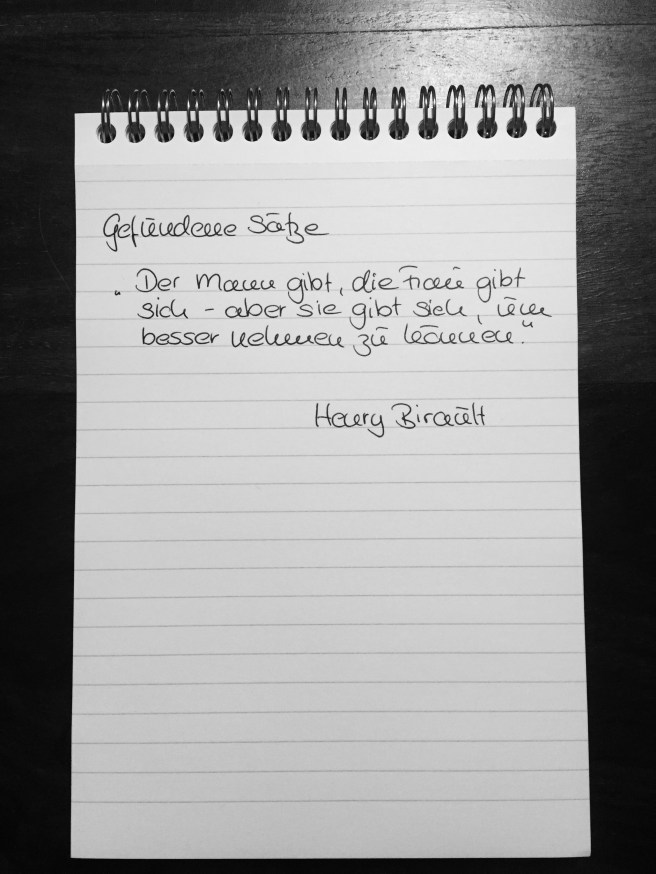 Gefundene Sätze
„Der Mann gibt, die Frau gibt
sich - aber sie gibt sich, um
besser nehmen zu können."
Henry Birault